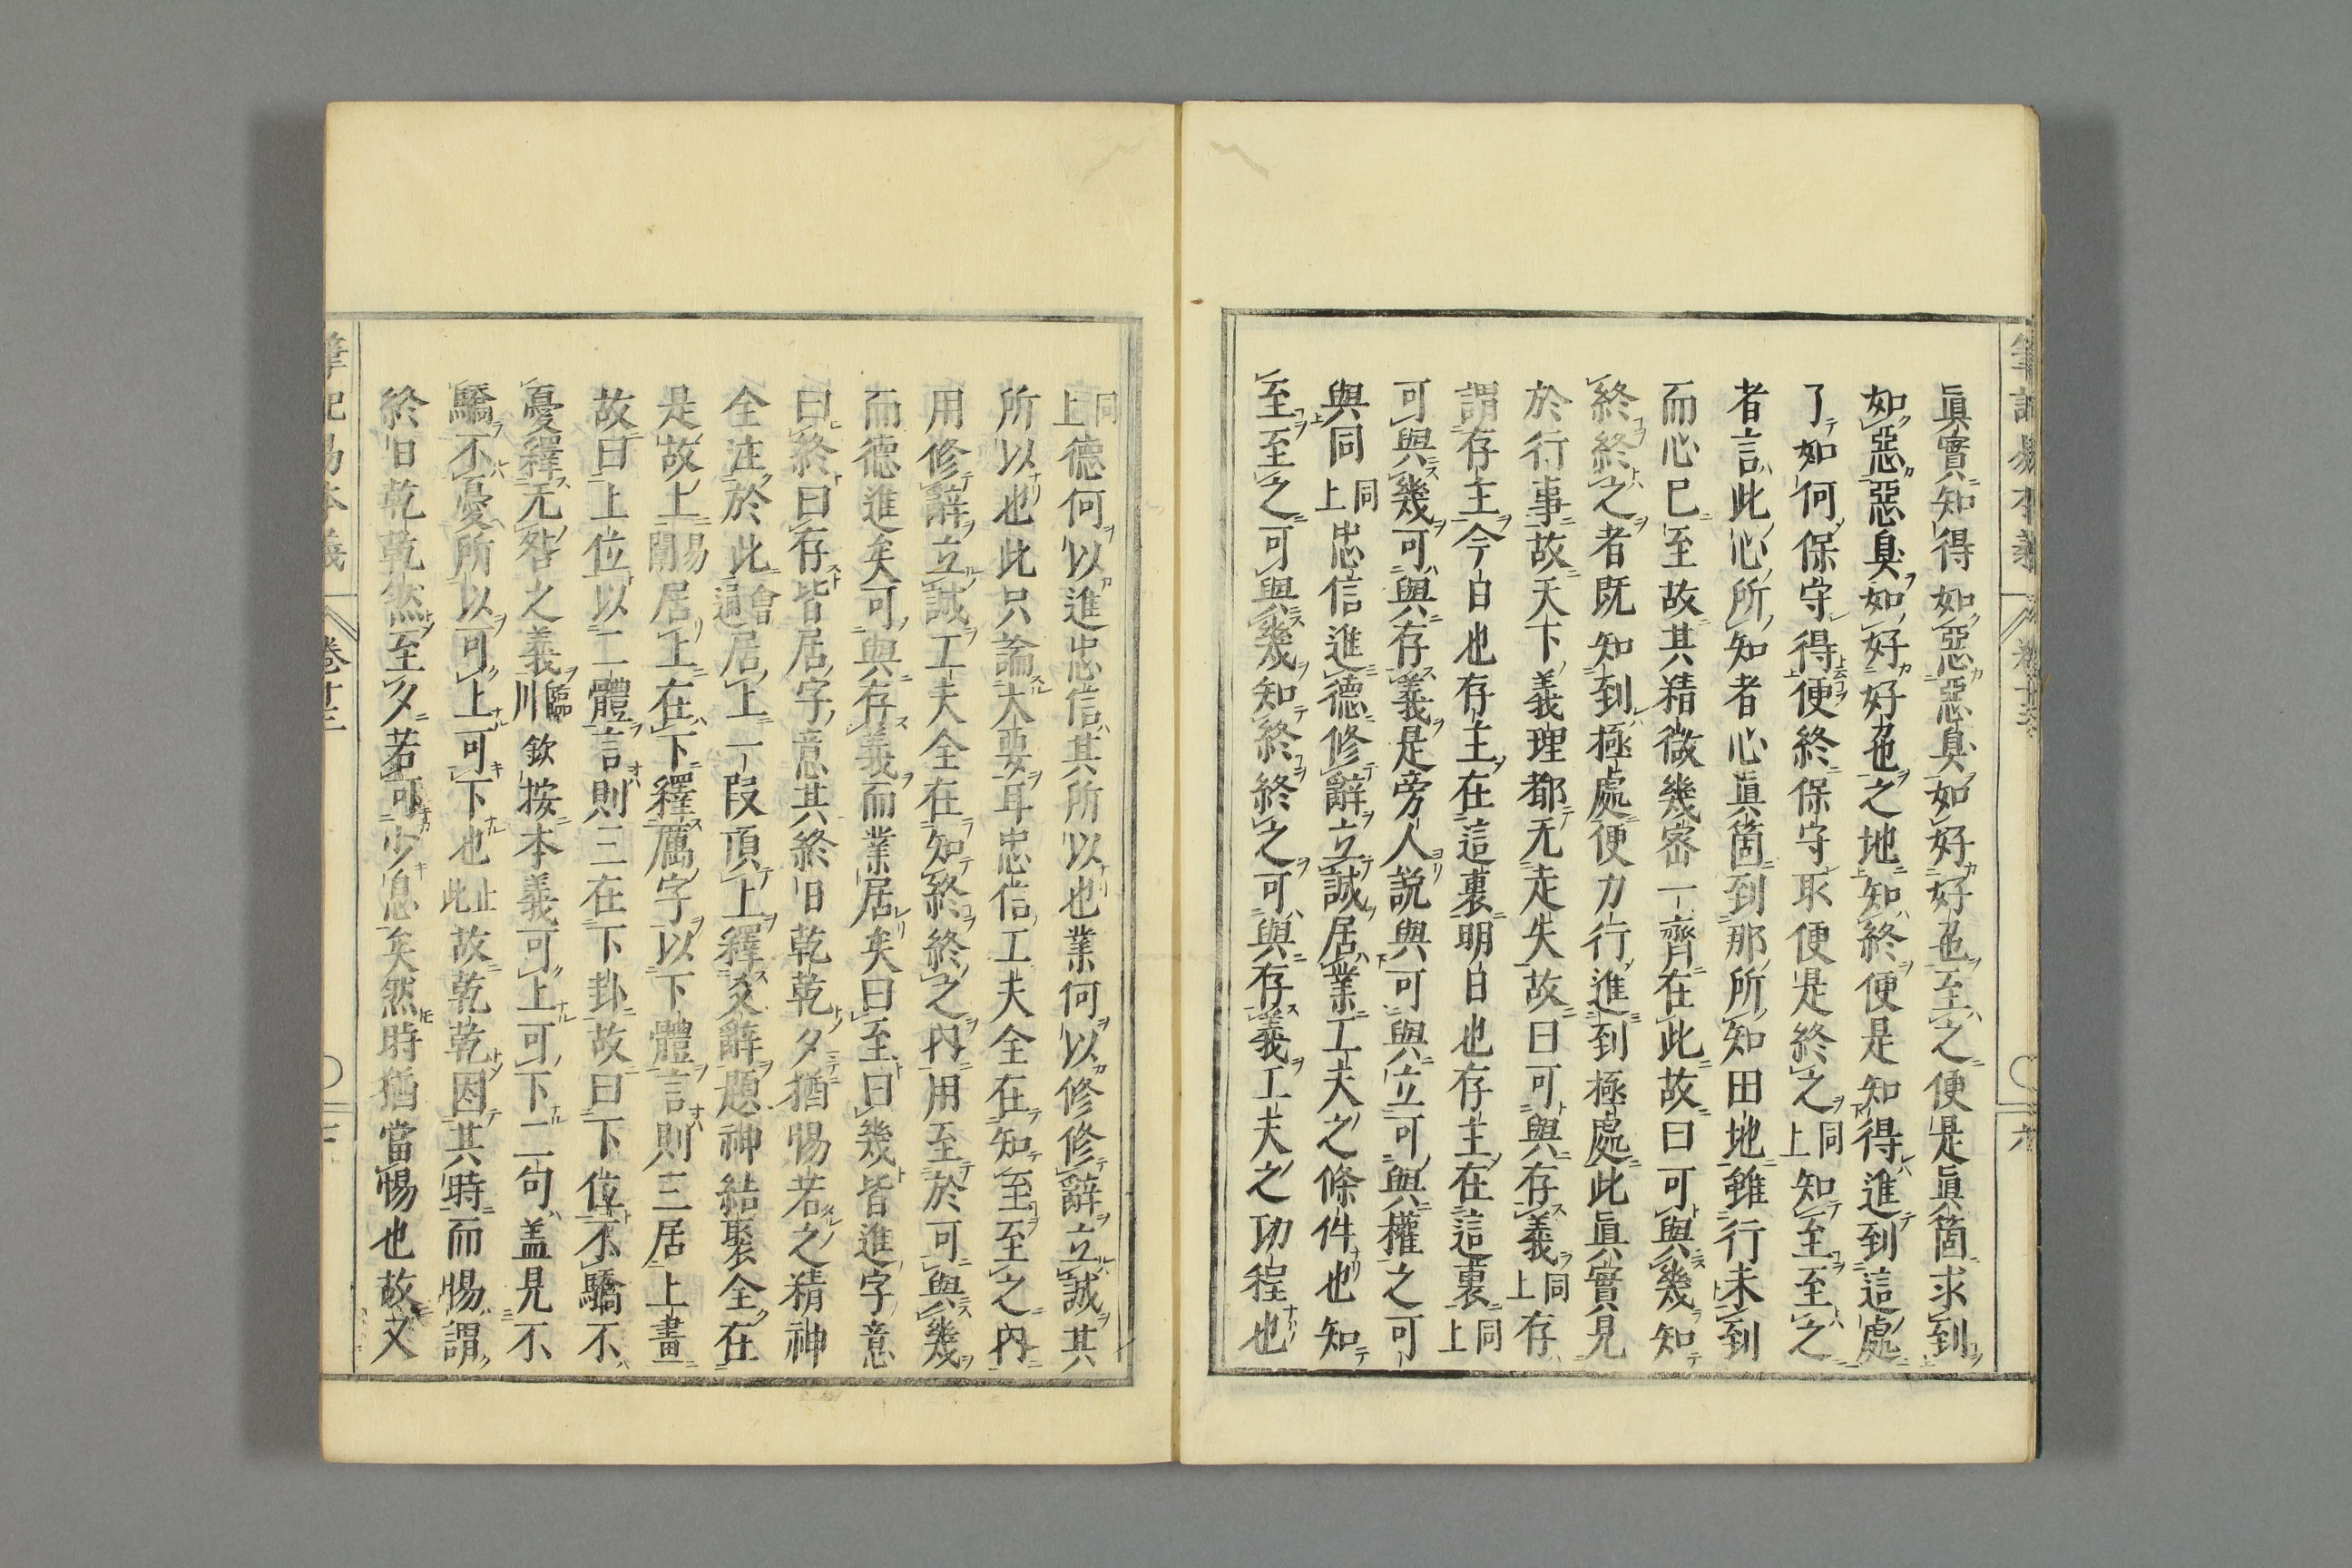 眞實知得如惡惡臭如好好色至之便是眞箇求到
如惡惡臭如好好色之地知終便是知得進到這處
了如何保守得便終保守取便是終之同上知至至之
者言此心所知者心眞箇到那所知田地雖行未到
而心已至故其精微幾密一齊在此故曰可與幾知
終終之者既知到極處便力行進到極處此眞實見
於行事故天下義理都无走失故曰可與存義同上存
謂存主今日也存主在這裏明日也存主在這裏同上
可與幾可與存義是旁人說與可與立可與權之可
與同同上忠信進德修辭立誠居業工夫之條件也知
至至之可與幾知終終之可與存義工夫之功程也
同上德何以進忠信其所以也業何以修修辭立誠其
所以也此只論大要耳忠信工夫全在知至至之內
用修辭立誠工夫全在知終終之內用至於可與幾
而德進矣可與存義而業居矣曰至曰幾皆進字意
曰終曰存皆居字意其終日乾乾夕猶惕若之精神
全注於此會通居上一段頂上釋爻辭題神結聚全在
是故上易開居上在下釋厲字以下體言則三居上畫
故曰上位以二體言則三在下卦故曰下位不驕不
憂釋无咎之義臨川欽按本義可上可下二句蓋見不
驕不憂所以可上可下也止此故乾乾因其時而惕謂
終日乾乾然至夕若可少息矣然時猶當惕也故又